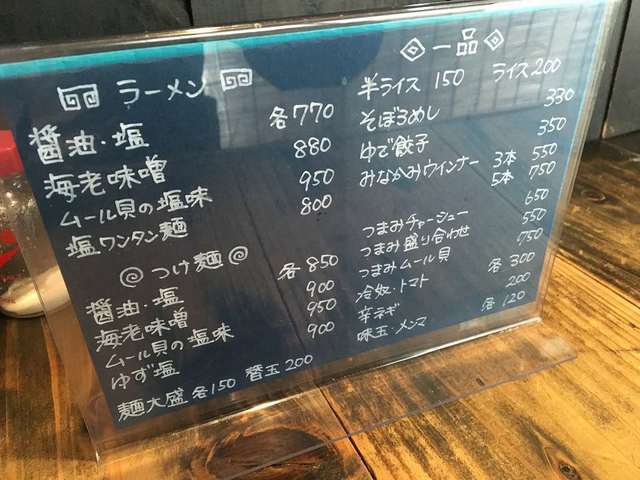 ラーメン
醤油・塩 各770
海老味噌 880
ムール貝の塩味 950
塩ワンタン麺 800
つけ麺
醤油・塩 各850
海老味噌 900
ムール貝の塩味 950
ゆず塩 900
麺大盛 各150 替玉 200
一品
半ライス 150 ライス200
そぼろめし 330
ゆで餃子 350
みなかみウインナー 3本 550
5本 750
つまみチャーシュー 650
つまみ盛り合わせ 550
つまみムール貝 750
冷奴・トマト 各300
辛ネギ 200
味玉・メンマ 各120